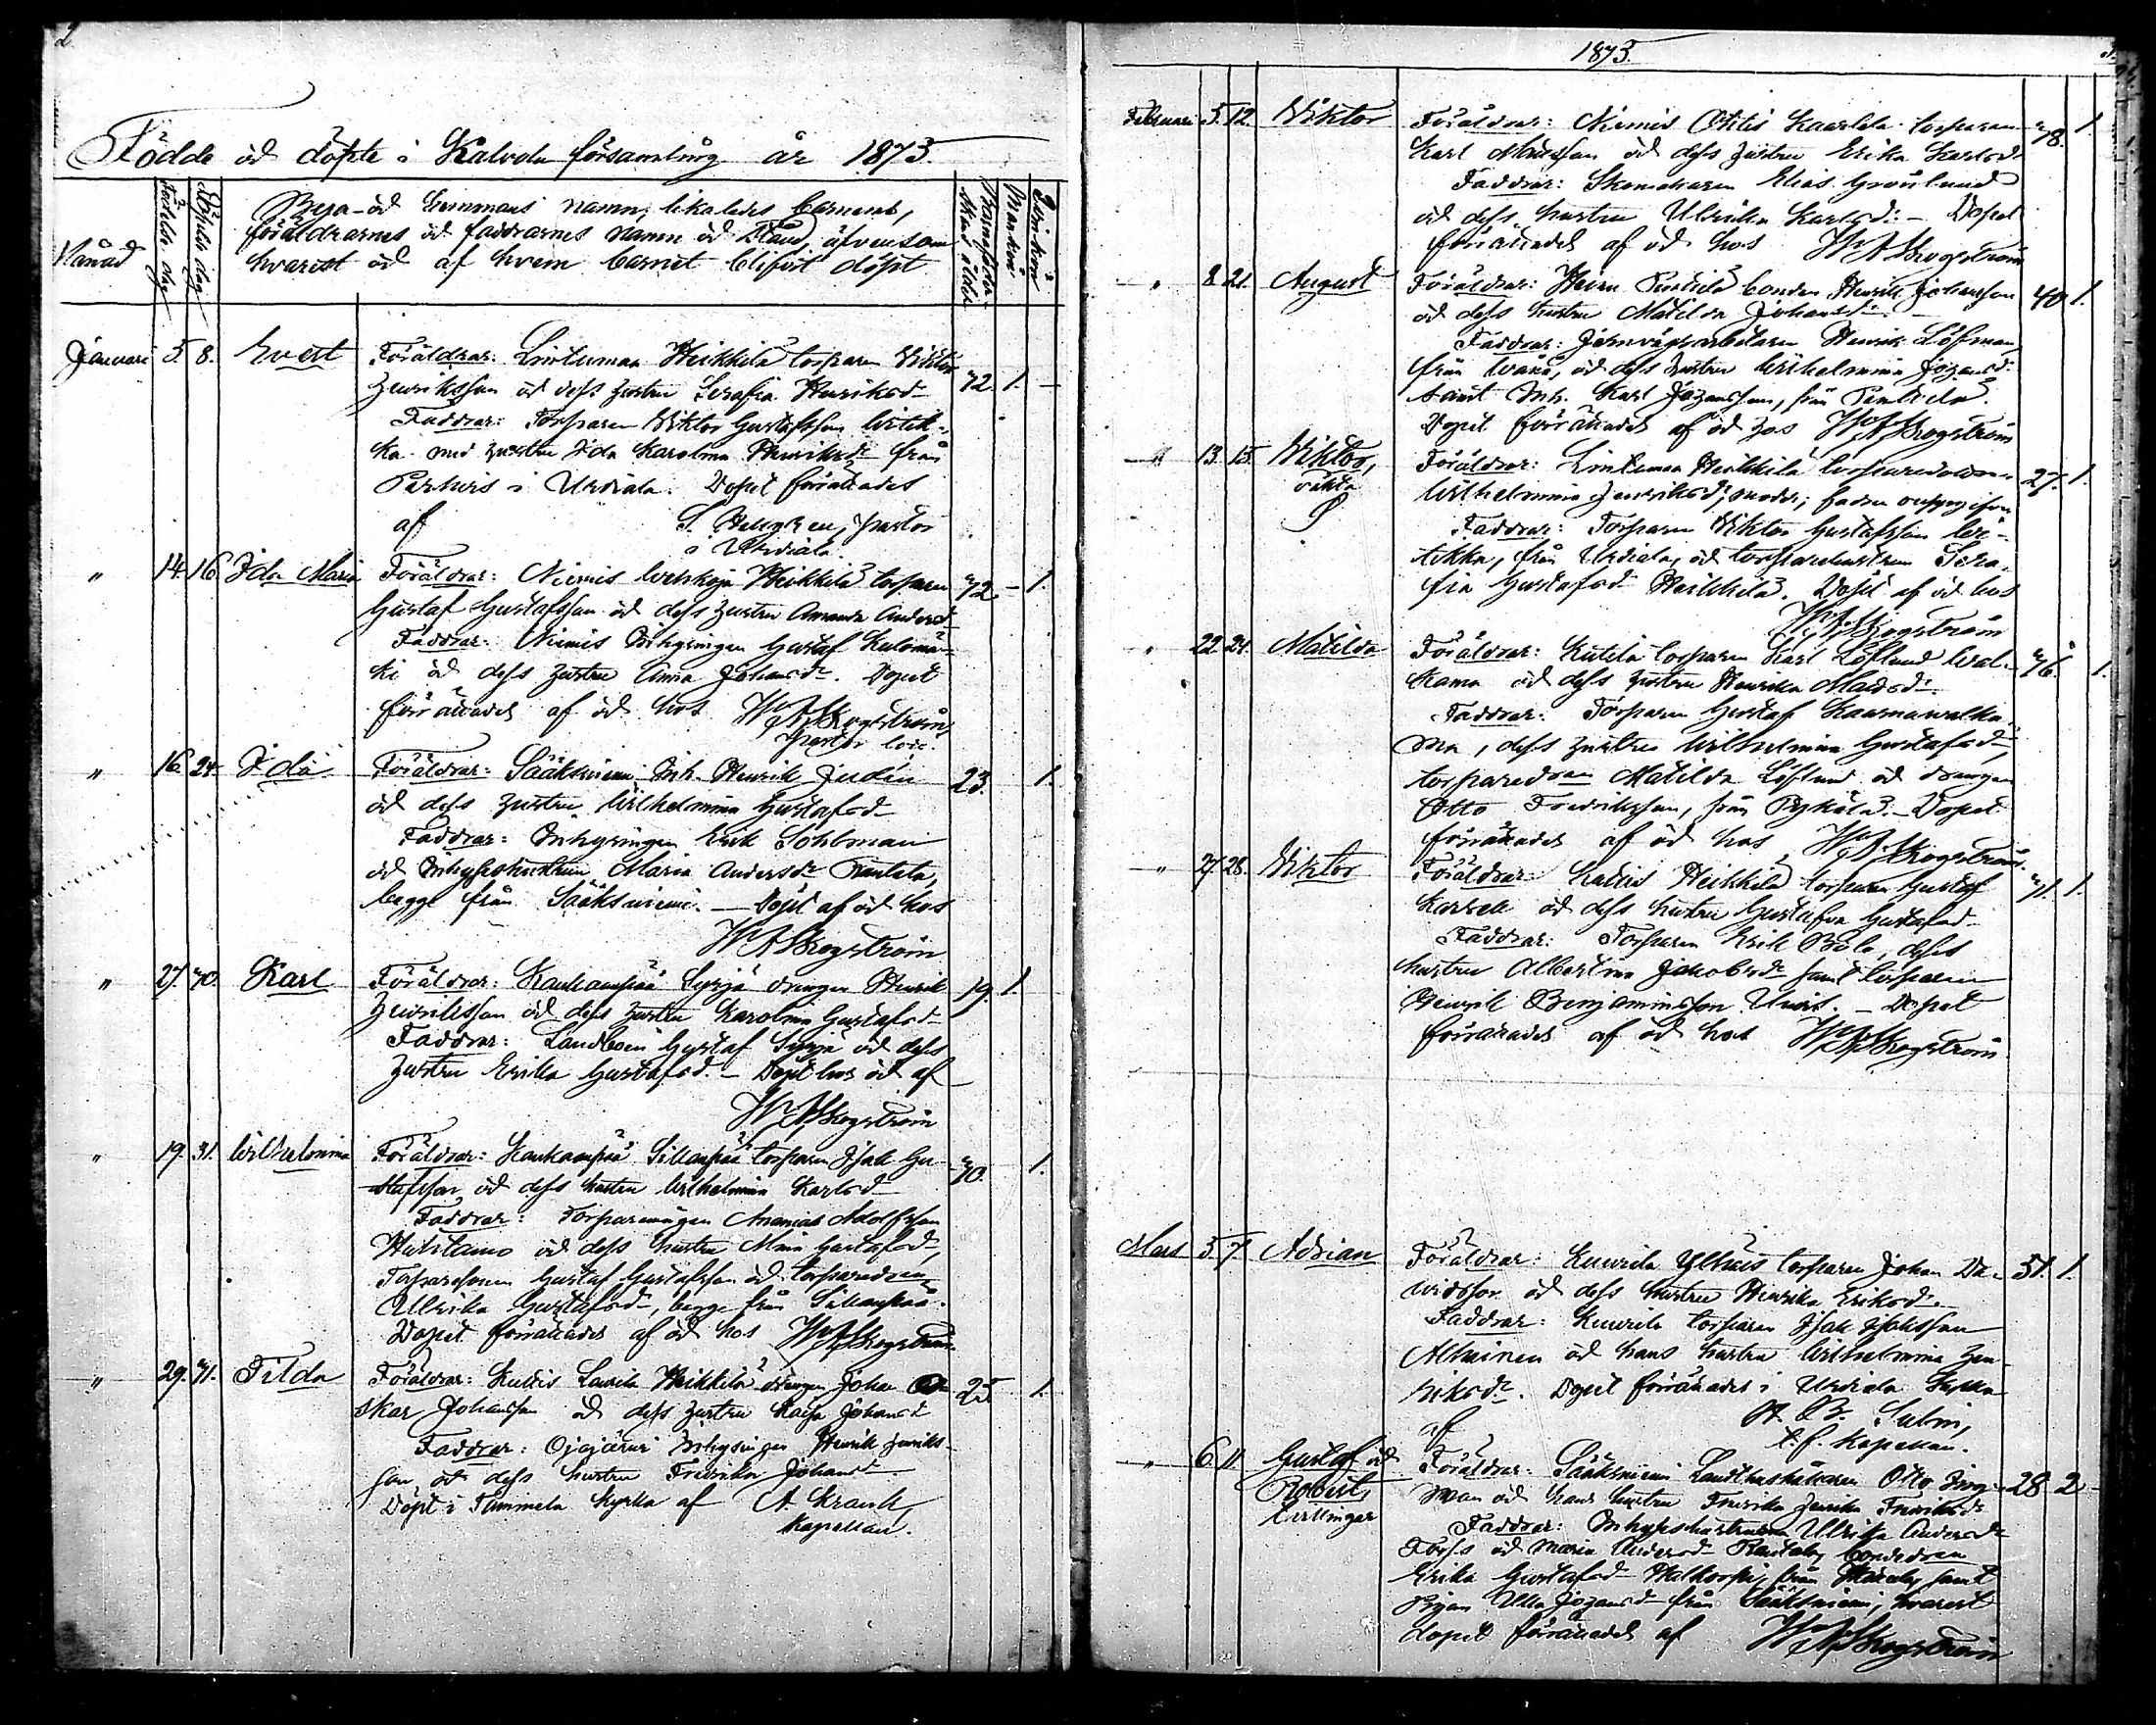 2
Födde och döpte i Kalvola församling år 1873.
Månad
Födelse dag
Döpelse dag
Bya- och hemmans namn, likaledes barnens,
föräldrarnes och faddrarnes namn och stånd, äfvensom
hvarest och af hvem barnet blifvit döpt
Barnaföderskans ålder
Mankön
Qvinkön
Januari 5. 8. Evert Föräldrar: Lintumaa Heikkilä torparen Viktor
Henriksson och dess hustru Serafia Henriksdr 32. 1. –
Faddrar: Torparen Viktor Gustafsson
ka med hustru Ida Karolina Henriksdr från
i Urdiala. Dopet förrättades
af S. Hellgren, pastor
i Urdiala.
" 14. 16. Ida Maria Föräldrar: Niemis Heikkilä torparen 32 – 1.
Gustaf Gustafsson och dess hustru Amanda Andersdr
Faddrar: Niemis Inhysingen Gustaf Kulomä-
ki och dess hustru Anna Johansdr. Dopet
förrättades af och hos W A Skogström,
pastor loci.
" 16. 24. Ida Föräldrar: Sääksniemi Inh. Henrik Judin 23. 1.
och dess hustru Wilhelmina Gustafsdr
Faddrar: Inhysingen Erik Sohlman
och Inhyseshustrun Maria Andersdr Rautala,
begge från Sääksniemi. – Döpt af och hos
W A Skogström
" 27. 30. Karl Föräldrar: Kankaanpää Syrjä drängen Henrik 19. 1.
Henriksson och dess hustru Karolina Gustafsdr
Faddrar: Landbonden Gustaf Syrjä och dess
hustru Erika Gustafsd. – Döpt hos och af
W A Skogström
" 19. 31. Wilhelmina Föräldrar: Kankaanpää Sillanpää torparen Isak Gu- 30. 1.
stafsson och dess hustru Wilhelmina Karlsd
Faddrar: Torparemågen Ananias Adolfsson
Huhtamo och dess hustru Gustafsd,
Torparesonen Gustaf Gustafsson och torparedrn
Ulrika Gustafsd, begge från Sillanpää.
Dopet förrättades af och hos W A Skogström
" 29. 31. Tilda Föräldrar: Kutis Laurila Heikkilä drängen Johan O- 25. 1.
skar Johansson och dess hustru Kaisa Johansd
Faddrar: Ojajärvi Inhysingen Henrik Henriks-
son och dess hustru Fredrika Johansd
Döpt i Tammela Kyrka af A. Krank,
Kapellan.
1873.
3.
Februari 5. 12. Viktor Föräldrar: Niemis Ohtis Kaarlela torparen 38. 1.
Karl Mattsson och dess hustru Erika Karlsd
Faddrar: Skomakaren Elias Grönlund
och dess hustru Ulrika Karlsd: – Dopet
förrättades af och hos W A Skogström
" 8. 21. August Föräldrar: Heinu Pentilä bonden Henrik Johansson 40. 1.
och dess hustru Matilda Johansdr.
Faddrar: Jernvägsarbetaren Henrik Löfman
från och dess hustru Wilhelmina Johansd
samt Inh. Karl Johansson, från Pentilä.
Dopet förrättades af och hos W A Skogström
" 13. 15. Viktor, Föräldrar: Lintumaa Heikkilä torparedottren 27. 1.
oäkta Wilhelmina Henriksd, moder; fader ouppgifven
Faddrar: Torparen Viktor Gustafsson
från Urdiala, och torparehustrun Sera-
fia Gustafsd Heikkilä. Döpt af och hos
W A Skogström
" 22. 24. Matilda Föräldrar: Kutila torparen Karl Löflund 36. 1.
kama och dess hustru Henrika Madsd
Faddrar: Torparen Gustaf
ma, dess hustru Wilhelmina Gustafsd,
torparedrn Matilda Löflund och drängen
Otto Fredriksson, från Pykälä. – Dopet
förrättades af och hos W A Skogström.
" 27. 28. Viktor Föräldrar: Kutis Heikkilä torparen Gustaf 31. 1.
och dess hustru Gustafva Gustafsd
Faddrar: Torparen Erik dess
hustru Albertina Jakobsdr samt torparen
Henrik Benjaminsson – Dopet
förrättades af och hos W A Skogström
Mars 5. 7. Adrian Föräldrar: Kuurila torparen Johan Da- 31. 1.
vidsson och dess hustru Henrika Eriksdr.
Faddrar: Kuurila torparen Isak Isaksson
Alhainen och hans hustru Wilhelmina Hen-
riksdr. Dopet förrättades i Urdiala kyrka
af Kapellan.
" 6. 11. Gustaf och Föräldrar: Sääksniemi Landthushållaren Otto 28 2 –
Robert, man och hans hustru Fredrika Henrika Fredriksdr
tvillingar Faddrar: Inhyseshustrurna Ulrika Andersdr
Forss och Maria Andersd Rautala, bondedrn
Erika Gustafsd från samt
pigan Ulla Johansd från Sääksniemi, hvarest
dopet förrättades af W A Skogström